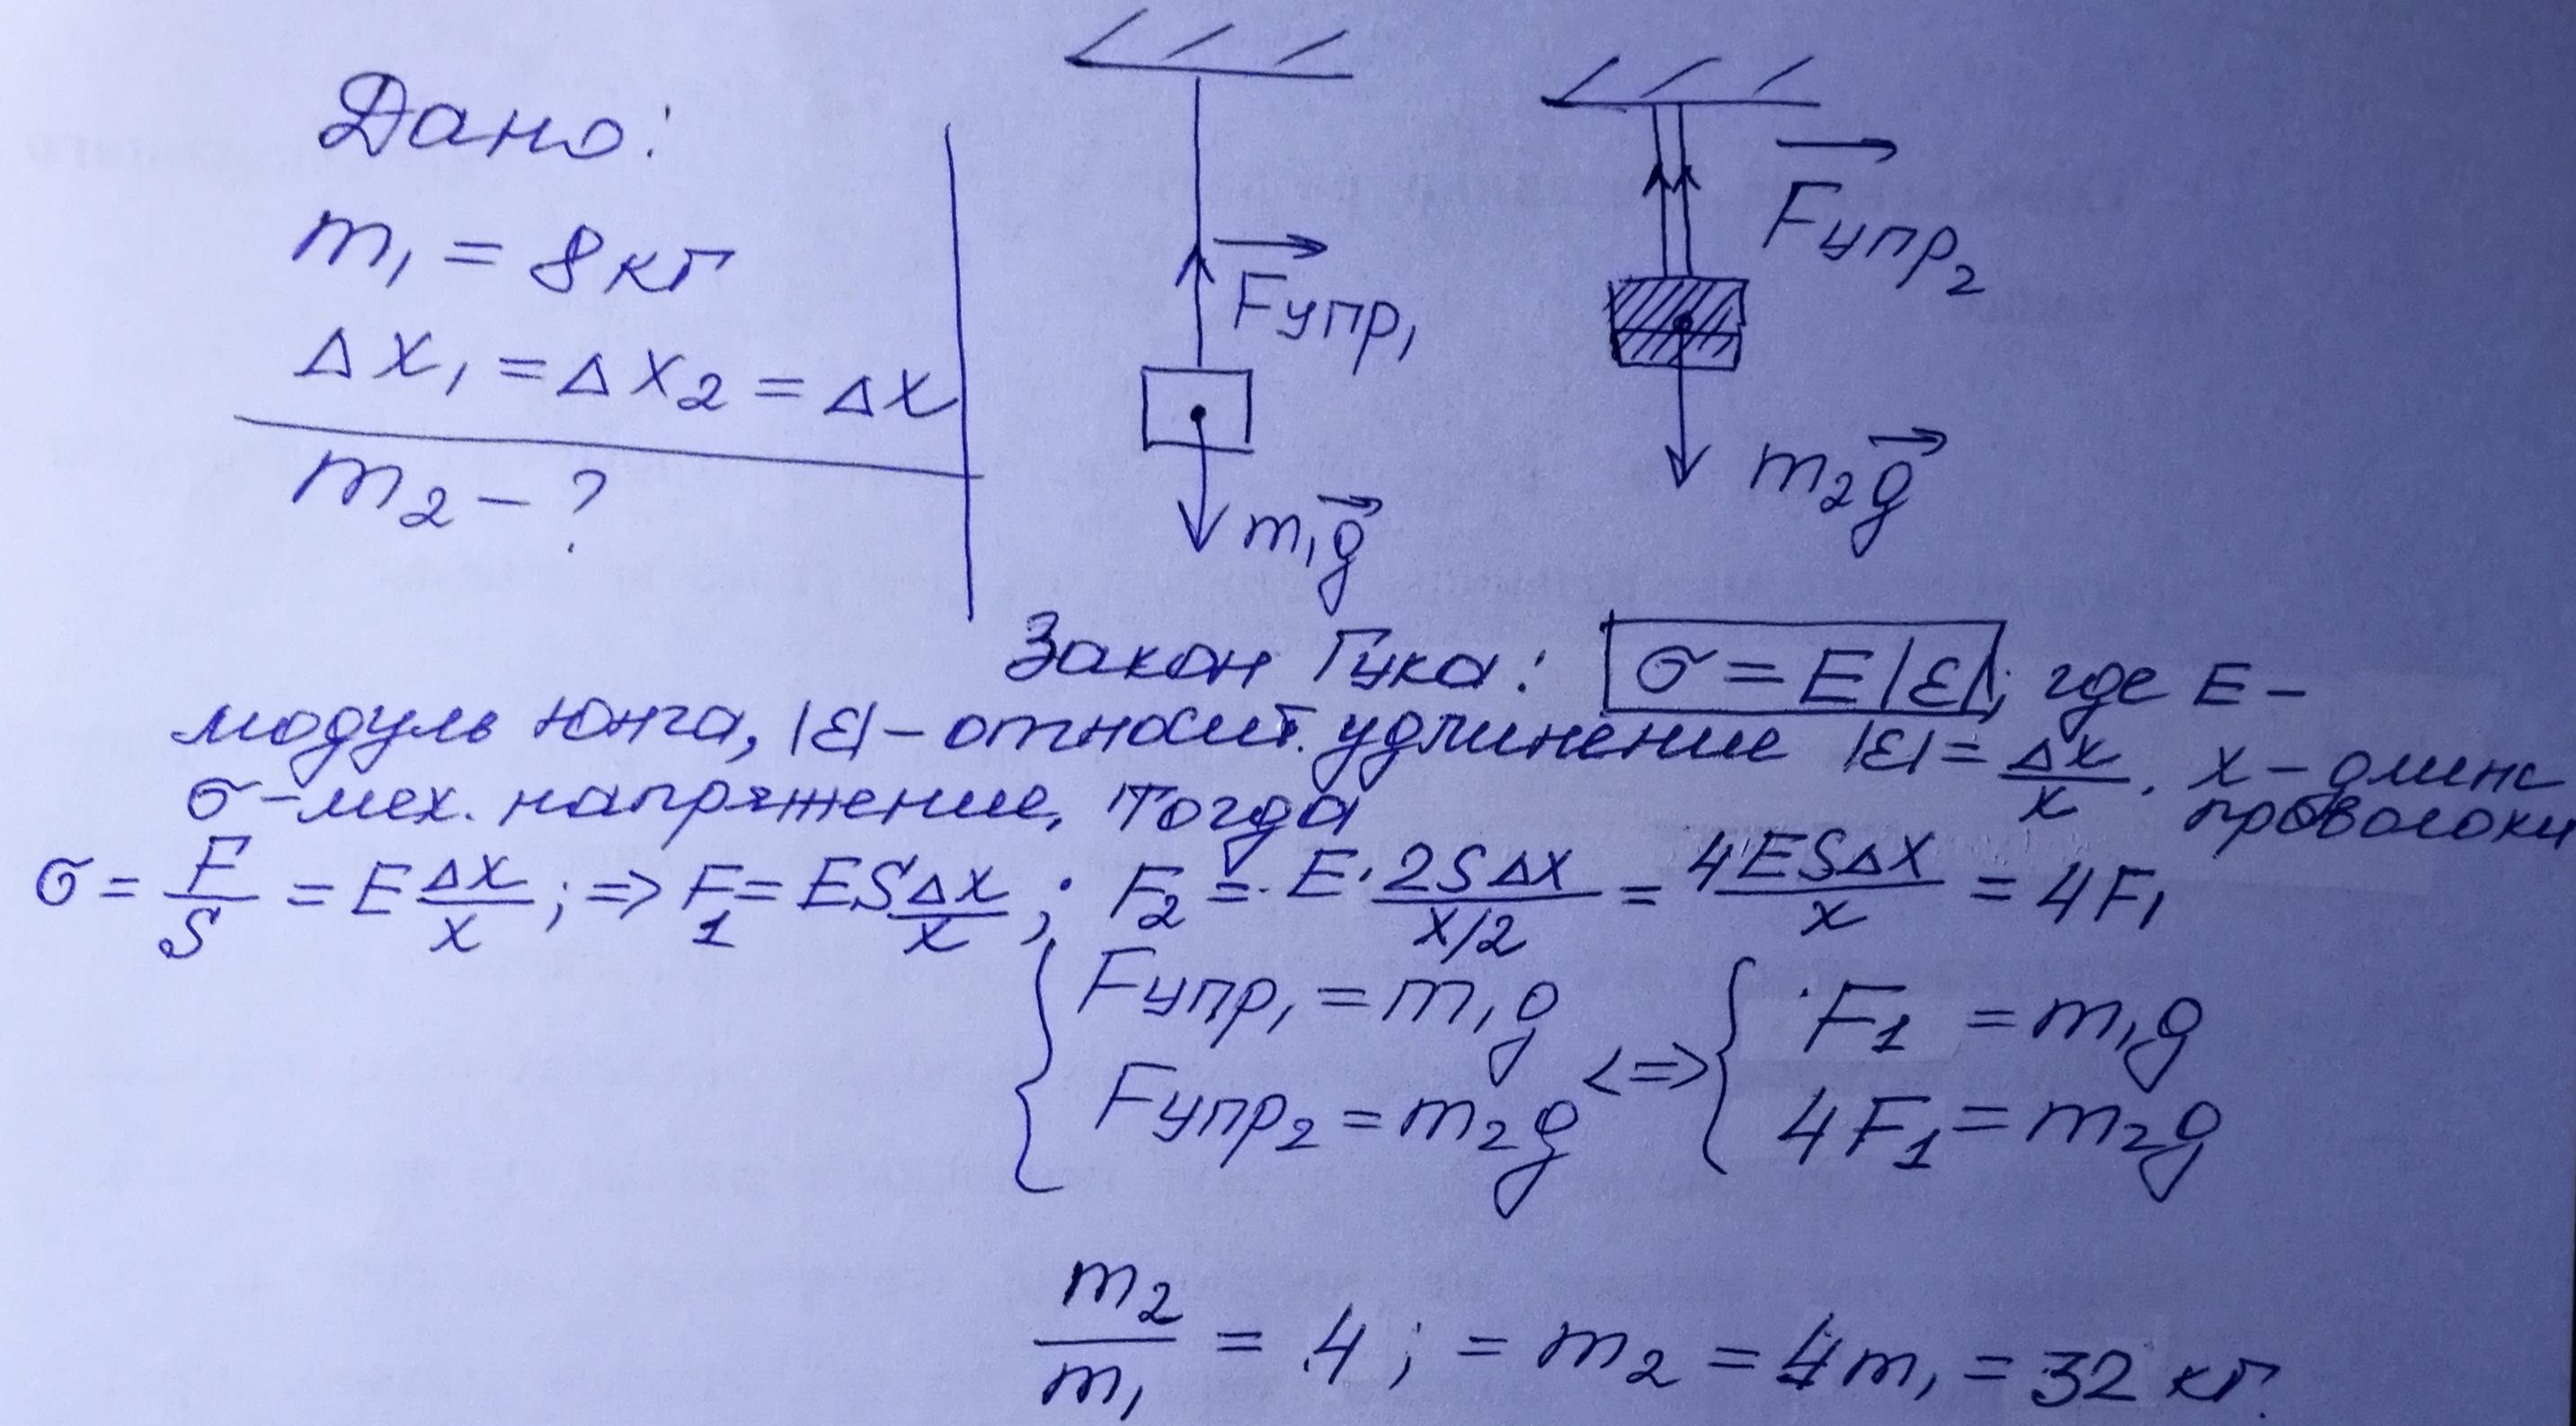 Дано:
m₁ = 8 кг
Δx₁ = Δx₂ = Δx
m₂ - ?
Fупр₁
m₁g
Fупр₂
m₂g
Закон Гука: σ = E|ε|; где E -
модуль Юнга, |ε| - относит. удлинение |ε| = Δx/x. x - длина
σ - мех. напряжение, тогда проволоки
σ = F/S = E Δx/x ; => F₁ = ES Δx/x ; F₂ = E · 2SΔx/(x/2) = 4ESΔx/x = 4F₁
{ Fупр₁ = m₁g { F₁ = m₁g
<=>
Fупр₂ = m₂g 4F₁ = m₂g
m₂/m₁ = 4 ; = m₂ = 4m₁ = 32 кг.